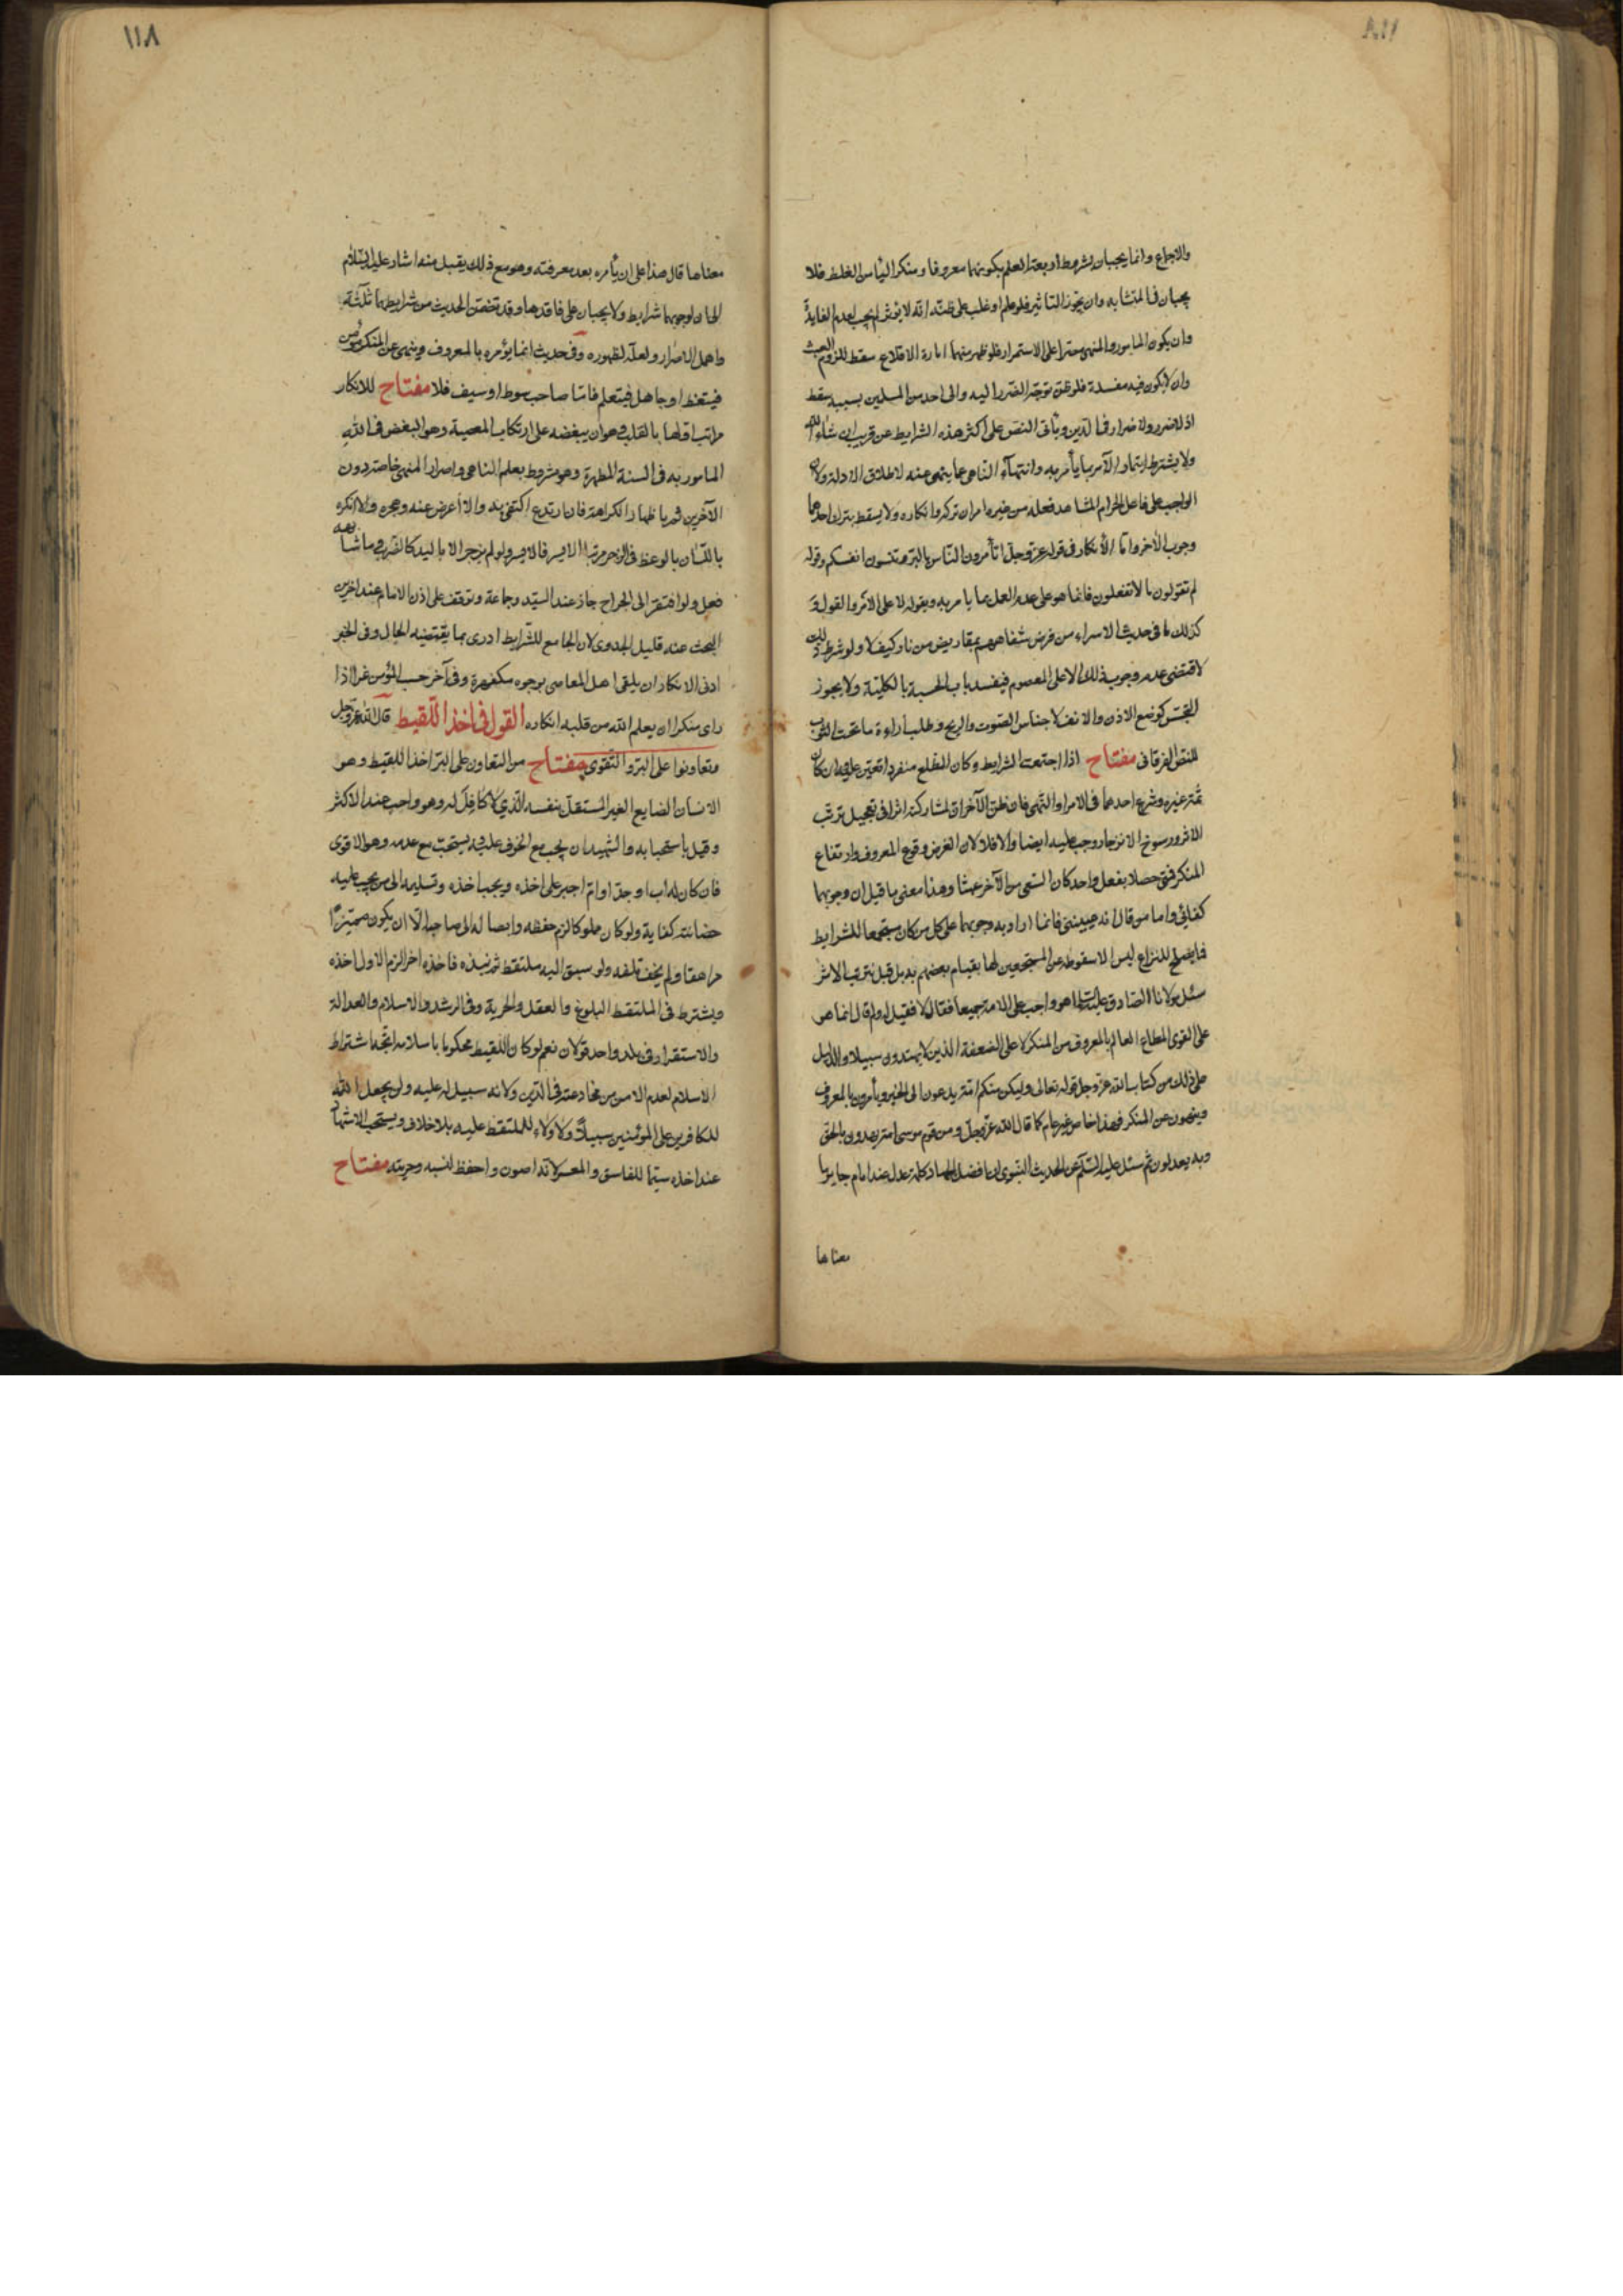 والاجماع وانما يجبان بشروط اربعة العلم بكونهما معروفا ومنكرا ليأمن الغلط فلا
يجبان في المتشابه وان يجوز التاثير فلو علم او غلب على ظنه انه لا يؤثر لم يجب لعدم الفايدة
وان يكون المامور والمنهي مصرا على الاستمرار فلو ظهر منهما امارة الاقلاع سقط للزوم العبث
وان لا يكون فيه مفسدة فلو ظن توجه الضرر اليه والى احد من المسلمين بسببه سقط
اذ لا ضرر ولا ضرار في الدين وياتي النص على اكثر هذه الشرايط عن قريب ان شاء الله
ولا يشترط ايتمار الآمر بما يأمر به وانتهاء الناهي عما ينهى عنه لاطلاق الادلة ولان
الواجب على فاعل الحرام المشاهد فعله من غيره امران تركه وانكاره ولا يسقط بترك احدهما
وجوب الآخر واما الانكار في قوله عز وجل اتأمرون الناس بالبر وتنسون انفسكم وقوله
لم تقولون ما لا تفعلون فانما هو على عدم العمل بما يامر به ويقوله لا على الامر والقول و
كذلك ما في حديث الاسراء من قرض شفاههم بمقاريض من نار كيف لا ولو شرط ذلك
لاقتضى عدم وجوب ذلك الا على المعصوم فيفسد باب الحسبة بالكلية ولا يجوز
التجسس كوضع الاذن والانف لاحساس الصوت والريح وطلب اراءة ما تحت الثوب
للنص القرآني مفتاح اذا اجتمعت الشرايط وكان المطلع منفردا تعين عليه وان كان
ثمة غيره وشرع احدهما في الامر او النهي فان ظن الآخر ان لمشاركته اثرا في تعجيل ترتب
الاثر ورسوخ الانزجار وجب عليه ايضا والا فلا لان الغرض وقوع المعروف وارتفاع
المنكر فمتى حصلا بفعل واحد كان السعي من الآخر عبثا وهذا معنى ما قيل ان وجوبهما
كفائي واما من قال انه عيني فانما اراد به وجوبهما على كل من كان مستجمعا للشرايط
فما يصلح للنزاع ليس الا سقوطه عن المستجمعين لها بقيام بعضهم به بل قبل ترتب الاثر
سئل مولانا الصادق عليه السلام اهو واجب على الامة جميعا فقال لا فقيل له ولم قال انما هو
على القوي المطاع العالم بالمعروف من المنكر لا على الضعفة الذين لا يهتدون سبيلا والدليل
على ذلك من كتاب الله عز وجل قوله تعالى وليكن منكم امة يدعون الى الخير ويأمرون بالمعروف
وينهون عن المنكر فهذا خاص غير عام كما قال الله عز وجل ومن قوم موسى امة يهدون بالحق
وبه يعدلون ثم سئل عليه السلام عن الحديث النبوي ان افضل الجهاد كلمة عدل عند امام جاير ما
معناها
١١٨
معناها قال هذا على ان يأمره بعد معرفته وهو مع ذلك يقبل منه اشار عليه السلام
الى ان لوجوبهما شرايط ولا يجبان على فاقدها وقد تضمن الحديث من شرايطهما ثلثة
واهمل الاصرار ولعله لظهوره وفي حديث انما يؤمر بالمعروف وينهى عن المنكر مؤمن
فيتعظ او جاهل فيتعلم فاما صاحب سوط او سيف فلا مفتاح للانكار
مراتب اولها بالقلب وهو ان يبغضه على ارتكاب المعصية وهو البغض في الله
المامور به في السنة المطهرة وهو مشروط بعلم الناهي واصرار المنهي خاصة دون
الآخرين ثم باظهار الكراهة فان ارتدع اكتفى به والا اعرض عنه وهجره والا انكره
باللسان بالوعظ والزجر مرتبا الايسر فالايسر ولو لم ينزجر الا باليد كالضرب وما شابهه
فعل ولو افتقر الى الجراح جاز عند السيد وجماعة وتوقف على اذن الامام عند آخرين
البحث عنه قليل الجدوى لان الجامع للشرايط ادرى بما يقتضيه الحال وفي الخبر
ادنى الانكار ان يلقى اهل المعاصي بوجوه مكفهرة وفي آخر حسب المؤمن غيرا اذا
راى منكرا ان يعلم الله من قلبه انكاره القول في اخذ اللقيط قال الله عز وجل
وتعاونوا على البر والتقوى مفتاح من التعاون على البر اخذ اللقيط وهو
الانسان الضايع الغير المستقل بنفسه الذي لا كافل له وهو واجب عند الاكثر
وقيل باستحبابه والشهيد ان يجب مع الخوف عليه ويستحب مع عدمه وهو الاقوى
فان كان له اب او جد او ام اجبر على اخذه ويجب اخذه وتسليمه الى من يجب عليه
حضانته كفاية ولو كان مملوكا لزم حفظه وايصاله الى صاحبه الا ان يكون مميزا
مراهقا ولم يخف تلفه ولو سبق اليه ملتقط ثم نبذه فاخذه آخر الزم الاول اخذه
ويشترط في الملتقط البلوغ والعقل والحرية وفي الرشد والاسلام والعدالة
والاستقرار في بلد واحد قولان نعم لو كان اللقيط محكوما باسلامه اتجه اشتراط
الاسلام لعدم الامن من مخادعته في الدين ولانه سبيل له عليه ولن يجعل الله
للكافرين على المؤمنين سبيلا ولا ولاء للملتقط عليه بلا خلاف ويستحب الاشهاد
عند اخذه سيما للفاسق والمعسر لانه اصون واحفظ لنسبه وحريته مفتاح